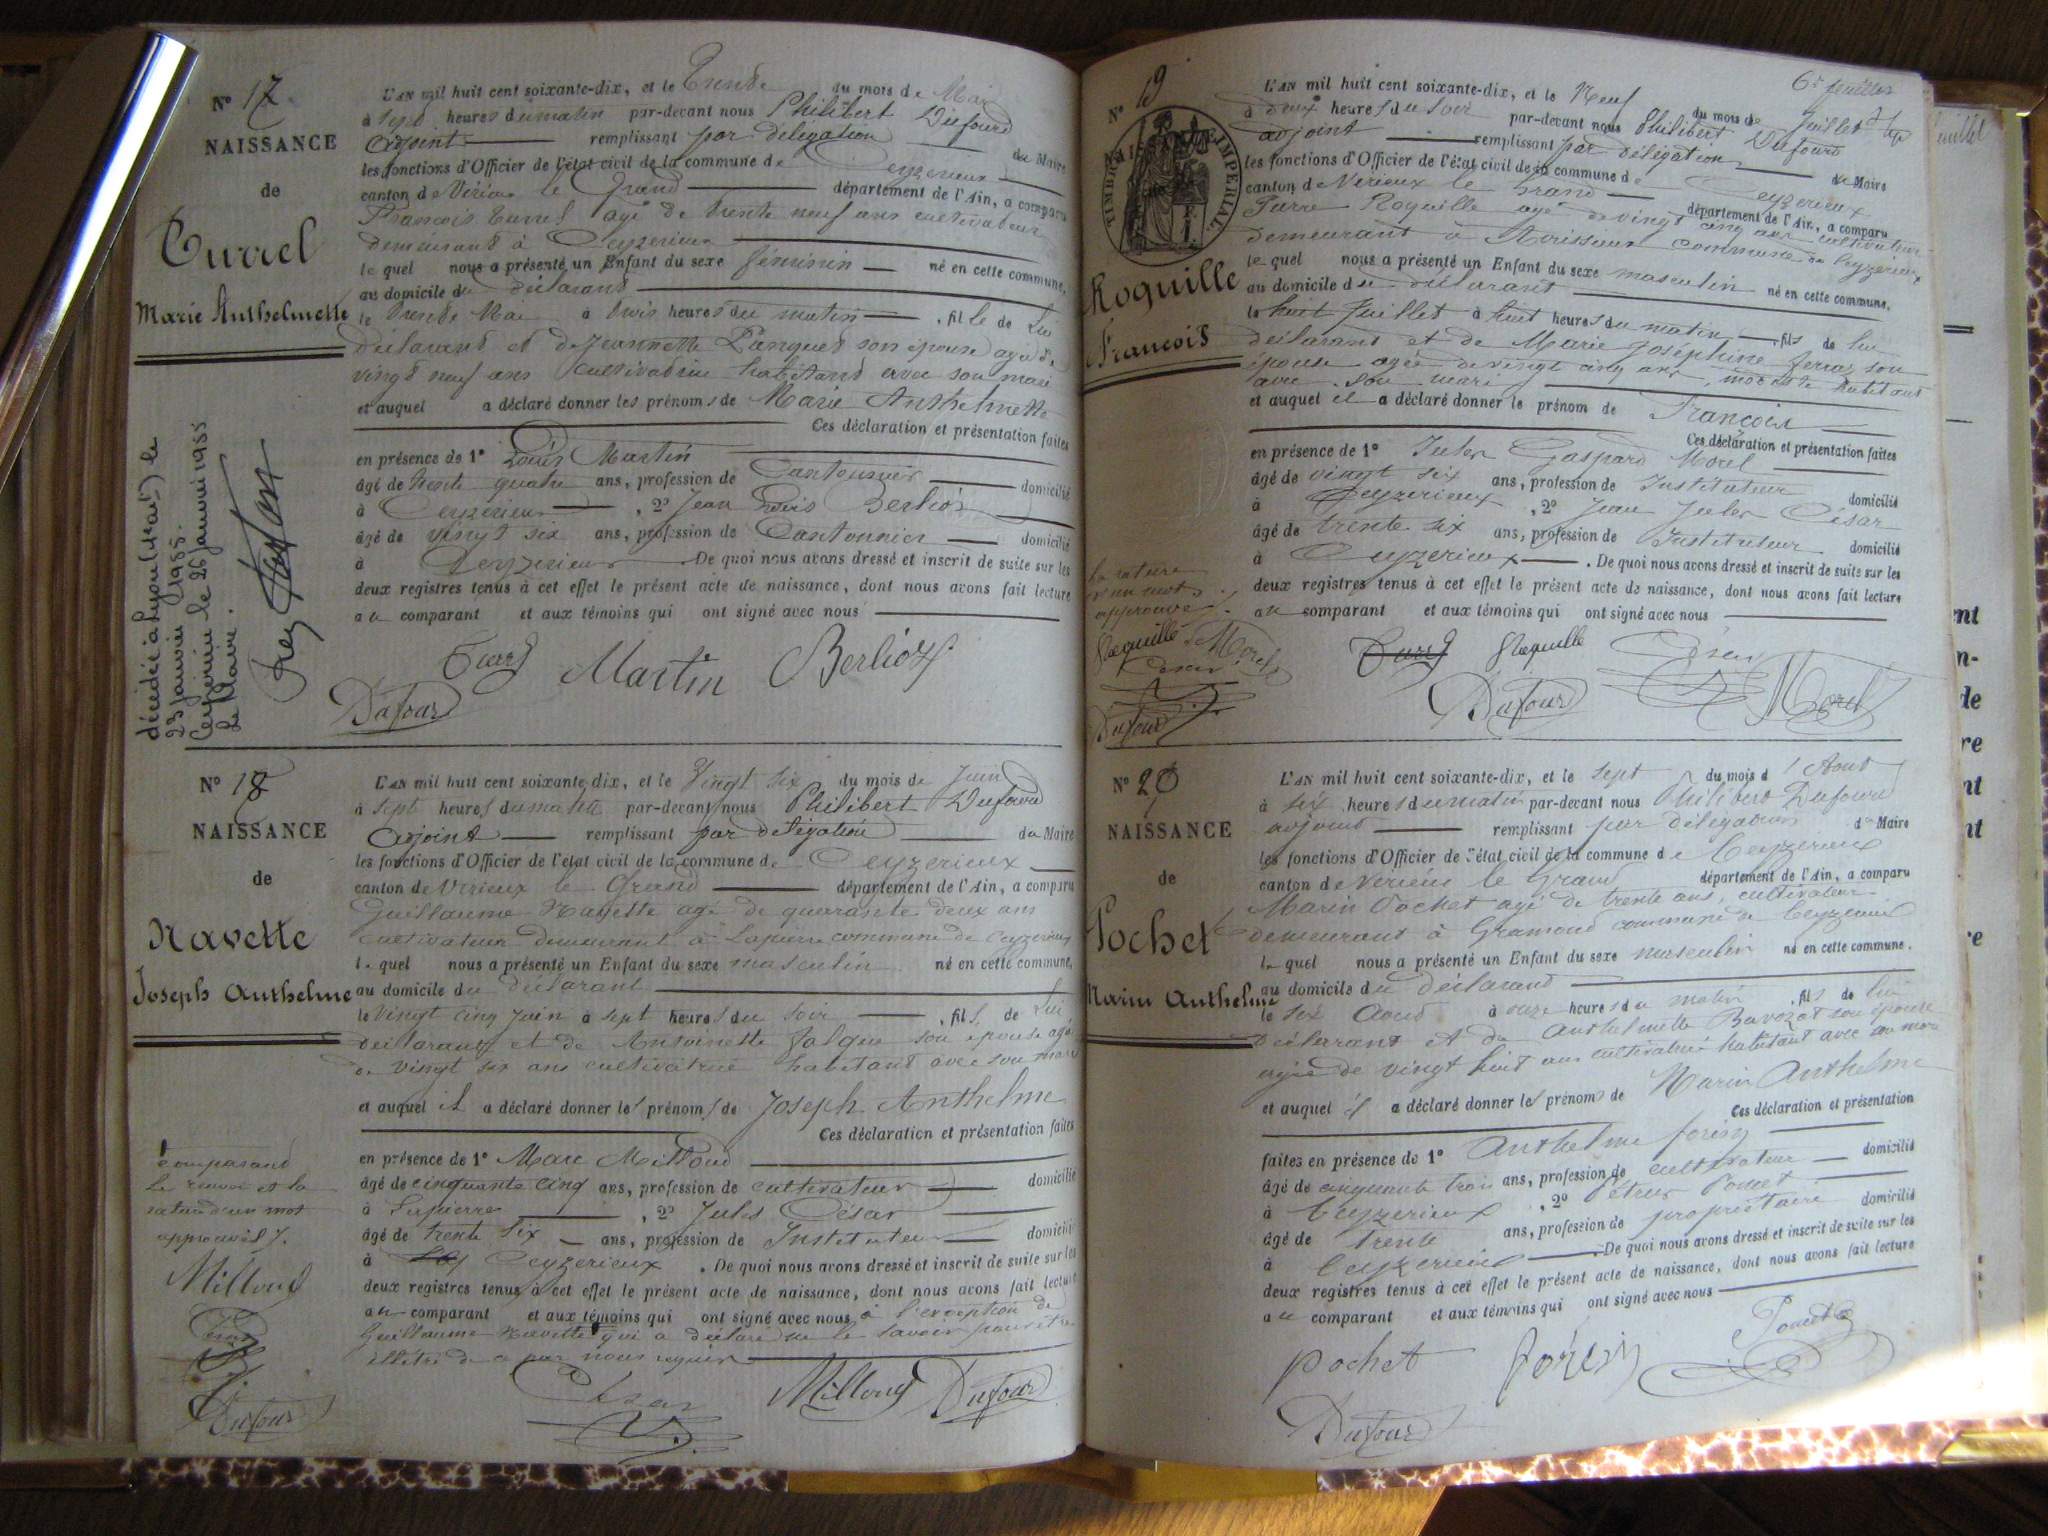 N° 17
NAISSANCE
de
Turrel
Marie Anthelmette
décédée à Lyon le
23 janvier 1955.
Ceyzérieu le 26 janvier 1955
Le Maire.
L'AN mil huit cent soixante-dix, et le Trente du mois de Mai
à sept heures du matin par-devant nous Philibert Dufour
adjoint remplissant par délégation du Maire
les fonctions d'Officier de l'état civil de la commune de Ceyzerieux
canton de Virieu le Grand département de l'Ain, a comparu
François Turrel agé de trente neuf ans cultivateur
demeurant à Ceyzerieux
le quel nous a présenté un Enfant du sexe féminin né en cette commune,
au domicile du déclarant
le trente Mai à trois heures du matin, fille de lui
déclarant et de Jeannette Panquet son épouse agée de
vingt neuf ans cultivatrice habitant avec son mari
et auquel a déclaré donner les prénoms de Marie Anthelmette
Ces déclaration et présentation faites
en présence de 1° Louis Martin
âgé de trente quatre ans, profession de Cantonnier domicilié
à Ceyzerieux, 2° Jean Louis Berlioz
âgé de vingt six ans, profession de Cantonnier domicilié
à Ceyzerieux De quoi nous avons dressé et inscrit de suite sur les
deux registres tenus à cet effet le présent acte de naissance, dont nous avons fait lecture
au comparant et aux témoins qui ont signé avec nous
Martin Berlioz
Dufour
N° 18
NAISSANCE
de
Navette
Joseph Anthelme
comparant
Le renvoi et la
rature d'un mot
approuvés.
Milloud
Dufour
L'AN mil huit cent soixante-dix, et le Vingt six du mois de Juin
à sept heures du matin par-devant nous Philibert Dufour
adjoint remplissant par délégation du Maire
les fonctions d'Officier de l'état civil de la commune de Ceyzerieux
canton de Virieux le Grand département de l'Ain, a comparu
Guillaume Navette agé de quarante deux ans
cultivateur demeurant à Lapierre commune de Ceyzerieux
le quel nous a présenté un Enfant du sexe masculin né en cette commune,
au domicile du déclarant
le vingt cinq juin à sept heures du soir, fils de lui
déclarant et de Antoinette Falque son épouse agée
de vingt six ans cultivatrice habitant avec son mari
et auquel il a déclaré donner les prénoms de Joseph Anthelme
Ces déclaration et présentation faites
en présence de 1° Marc Milloud
âgé de cinquante cinq ans, profession de cultivateur domicilié
à Lapierre, 2° Jules César
âgé de trente six ans, profession de Instituteur domicilié
à Ceyzerieux. De quoi nous avons dressé et inscrit de suite sur les
deux registres tenus à cet effet le présent acte de naissance, dont nous avons fait lecture
au comparant et aux témoins qui ont signé avec nous à l'exception de
Guillaume Navette qui a déclaré ne le savoir pour être
illétré de ce par nous requis
César Milloud Dufour
6e feuillet
N° 19
TIMBRE IMPERIAL
Roquille
François
La rature
d'un mot
approuvée.
Roquille Morel
César
Dufour
L'AN mil huit cent soixante-dix, et le Neuf du mois de Juillet
à deux heures du soir par-devant nous Philibert Dufour
adjoint remplissant par délégation du Maire
les fonctions d'Officier de l'état civil de la commune de Ceyzerieux
canton de Virieux le Grand département de l'Ain, a comparu
Pierre Roquille agé de vingt cinq ans cultivateur
demeurant à Avrissieu commune de Ceyzerieux
le quel nous a présenté un Enfant du sexe masculin né en cette commune,
au domicile du déclarant
le huit Juillet à huit heures du matin, fils de lui
déclarant et de Marie Joséphine son
épouse agée de vingt cinq ans, habitant
avec son mari
et auquel il a déclaré donner le prénom de François
Ces déclaration et présentation faites
en présence de 1° Jules Gaspard Morel
âgé de vingt six ans, profession de Instituteur domicilié
à Ceyzerieux, 2° Jean Jules César
âgé de trente six ans, profession de Instituteur domicilié
à Ceyzerieux. De quoi nous avons dressé et inscrit de suite sur les
deux registres tenus à cet effet le présent acte de naissance, dont nous avons fait lecture
au comparant et aux témoins qui ont signé avec nous
Roquille César
Dufour Morel
N° 20
NAISSANCE
de
Pochet
Marin Anthelme
L'AN mil huit cent soixante-dix, et le sept du mois d'Aout
à six heures du matin par-devant nous Philibert Dufour
adjoint remplissant par délégation du Maire
les fonctions d'Officier de l'état civil de la commune de Ceyzerieux
canton de Virieux le Grand département de l'Ain, a comparu
Marin Pochet agé de trente ans, cultivateur
demeurant à Gramond commune de Ceyzerieux
le quel nous a présenté un Enfant du sexe masculin né en cette commune,
au domicile du déclarant
le six Aout à onze heures du matin, fils de lui
déclarant et de Anthelmette Bavozet son épouse
agée de vingt huit ans cultivatrice habitant avec son mari
et auquel il a déclaré donner les prénoms de Marin Anthelme
Ces déclaration et présentation
faites en présence de 1° Anthelme
âgé de cinquante trois ans, profession de cultivateur domicilié
à Ceyzerieux, 2° Pétrus Poncet
âgé de trente ans, profession de propriétaire domicilié
à Ceyzerieux De quoi nous avons dressé et inscrit de suite sur les
deux registres tenus à cet effet le présent acte de naissance, dont nous avons fait lecture
au comparant et aux témoins qui ont signé avec nous
Pochet Poncet
Dufour